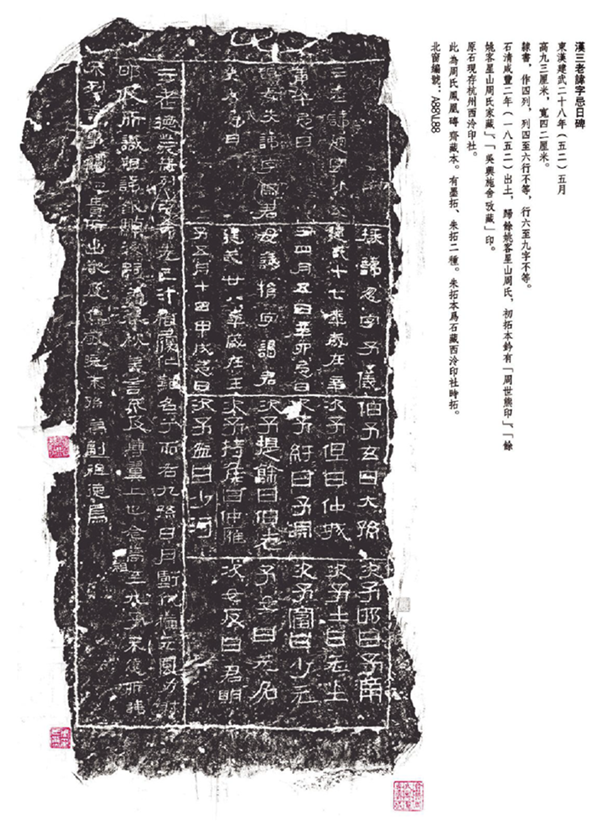 漢三老諱字忌日碑
東漢建武二十八年（五二）五月
高九三厘米，寬四二厘米。
隸書，作四列，列四至六行不等，行六至九字不等。
石清咸豐二年（一八五二）出土，歸餘姚客星山周氏，初拓本鈐有「周世熊印」、「餘
姚客星山周氏家藏」、「吳興施舍攷藏」印。
原石現存杭州西泠印社。
此為周氏鳳凰磚齋藏本。有墨拓、朱拓二種。朱拓本爲石藏西泠印社時拓。
北窗編號：A88NL88
三老諱通字小父
庚午忌日
祖母失諱字宗君
癸未忌日
掾諱忽字子儀
建武十七年歲在辛
丑四月五日辛卯忌日
母諱捐字謁君
建武廿八年歲在壬
子五月十日甲戌忌日
伯子玄曰大孫
次子但曰仲城
次子紆曰子淵
次子提餘曰伯老
次子持侯曰仲廱
次子盆曰少河
次子邯曰子南
次子士曰元士
次子富曰少元
子女曰无名
次女反曰君明
三老德業赫烈克命先己汁稽履仁難名兮而右九孫日月虧代猶元風力射
邯及所識祖諱欽顯後嗣蓋春秋義言不及尊翼上也念高祖至九子未遠所諱
不列言事觸忌貴所出嚴及焦敬曉末孫冀副祖德焉